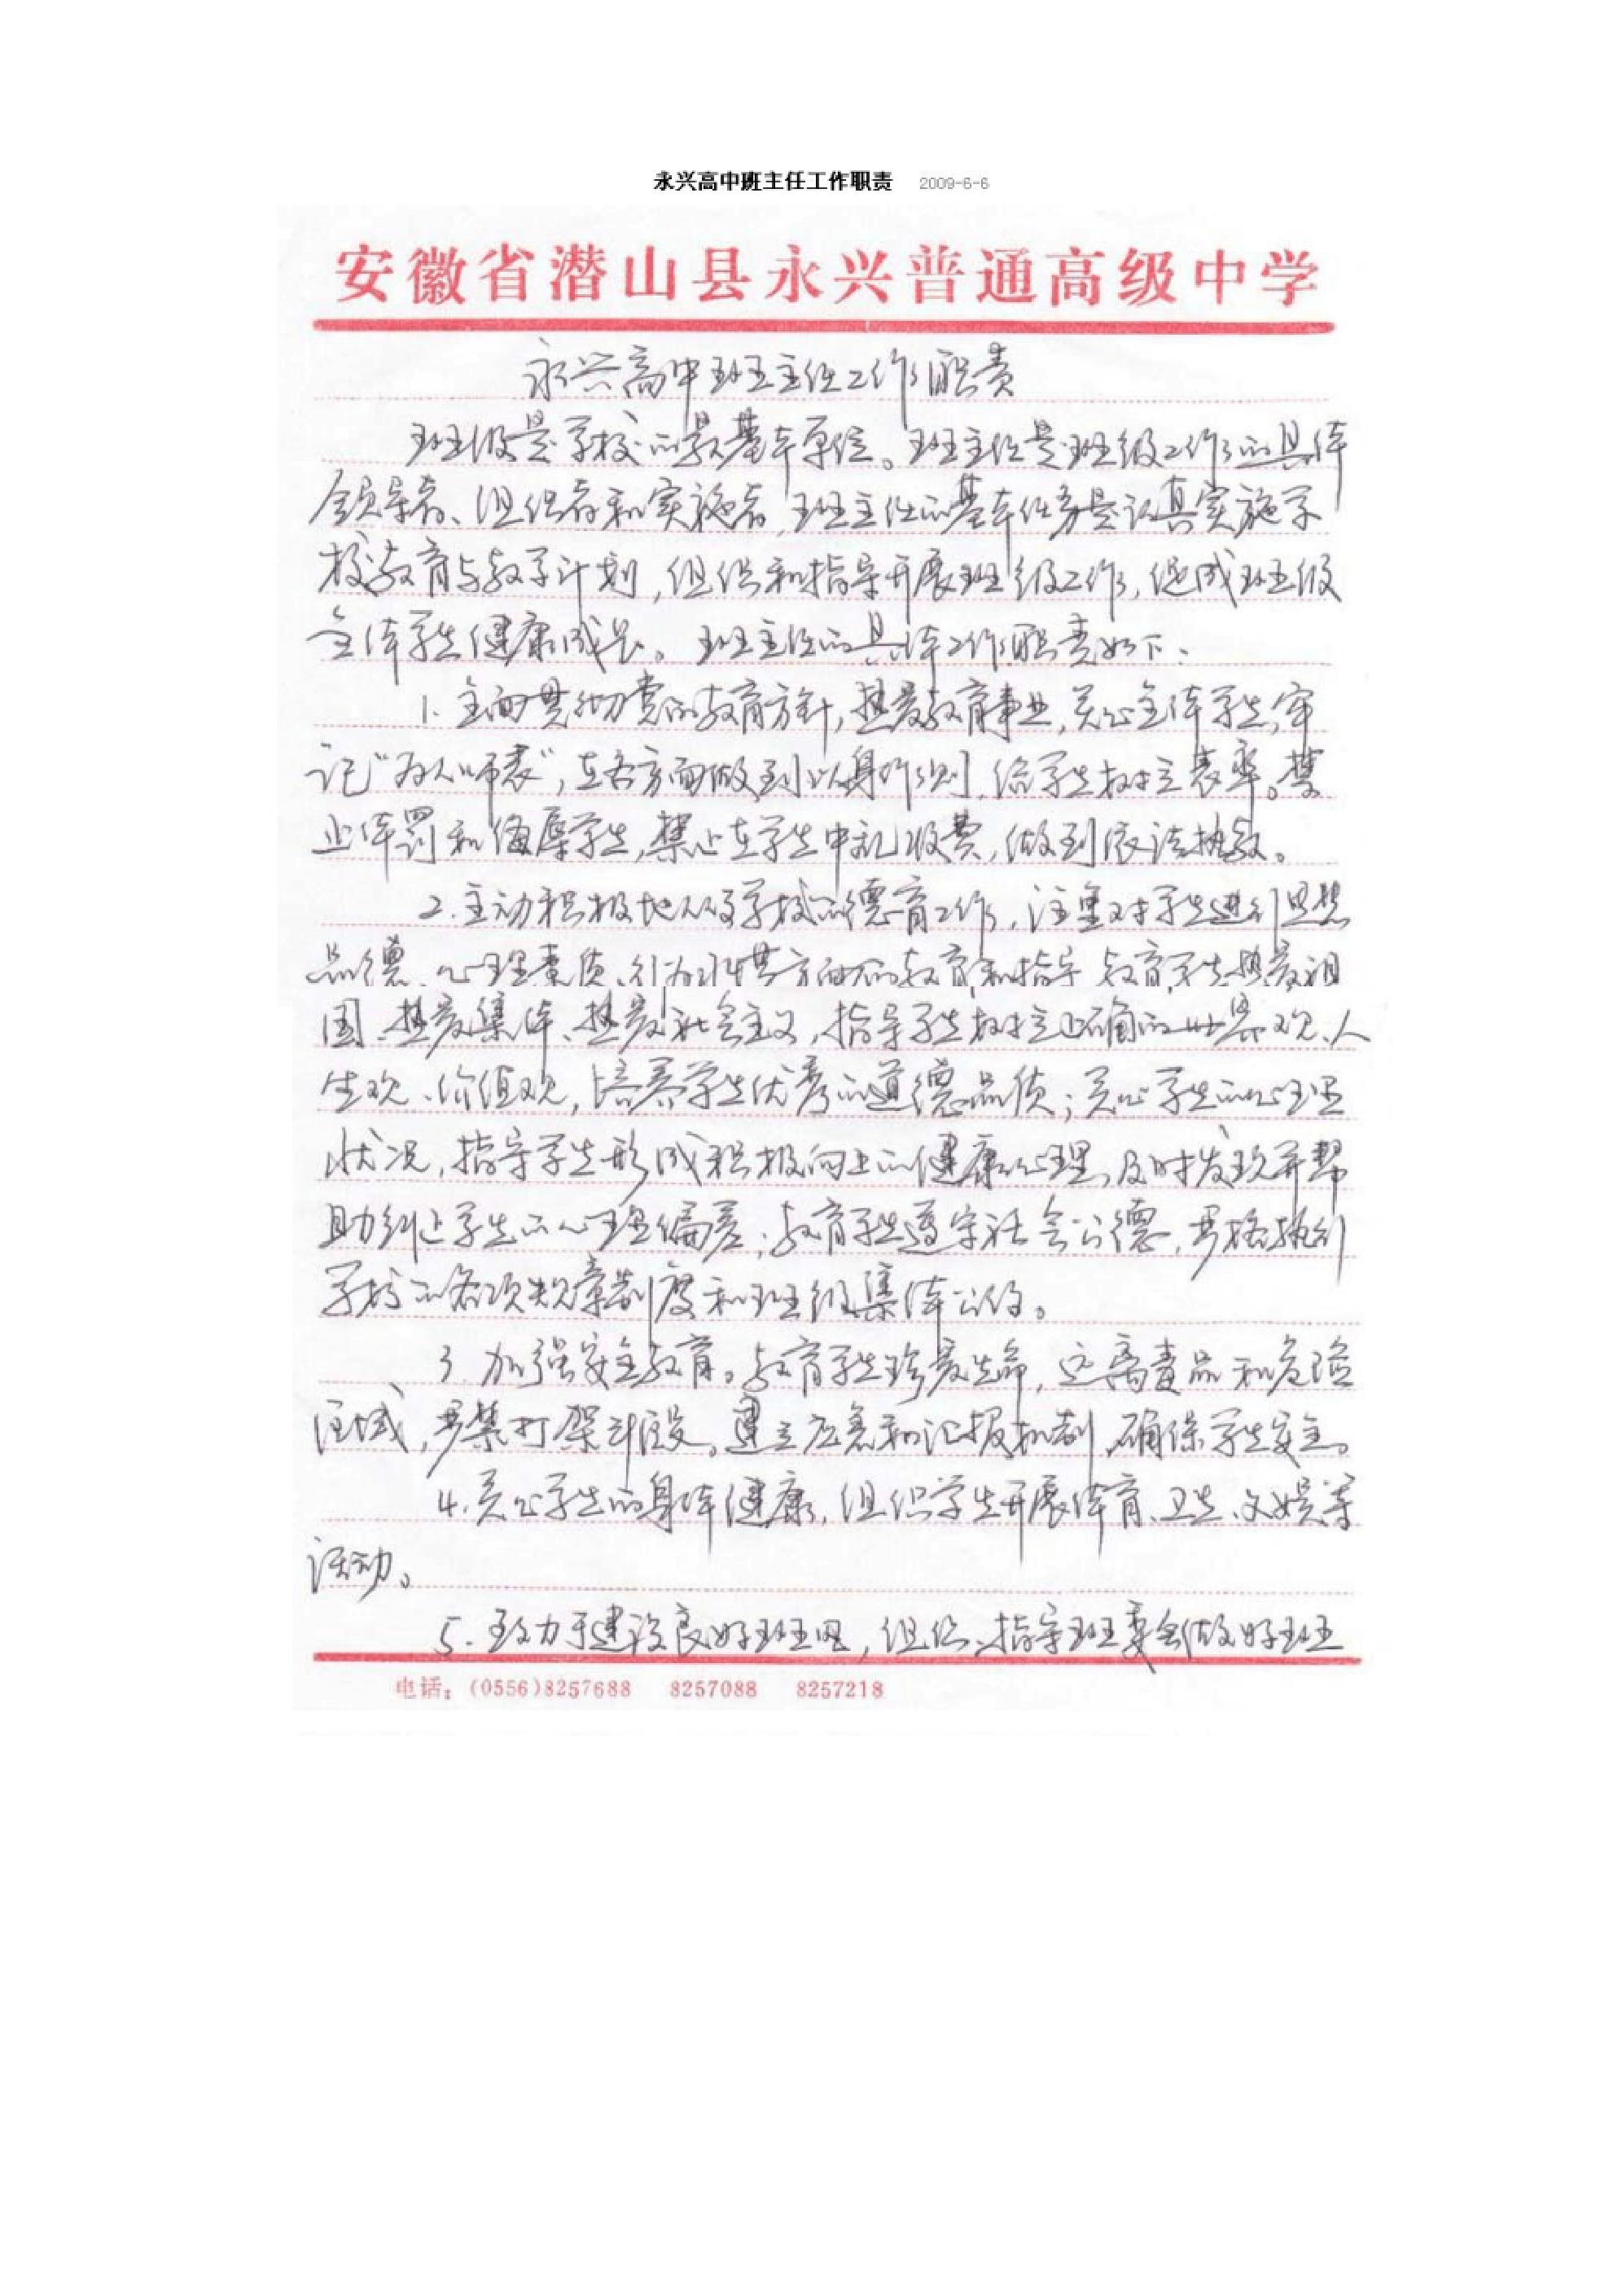 永兴高中班主任工作职责 2009-6-6
安徽省潜山县永兴普通高级中学
永兴高中班主任工作职责
班级是学校的最基本单位。班主任是班级工作的具体
领导者、组织者和实施者,班主任的基本任务是认真实施学
校教育与教学计划,组织和指导开展班级工作,促成班级
全体学生健康成长。班主任的具体工作职责如下:
1. 全面贯彻党的教育方针,热爱教育事业,关心全体学生,牢
记“为人师表”,在各方面做到以身作则,给学生树立表率。禁
止体罚和侮辱学生,禁止在学生中乱收费,做到依法执教。
2. 主动积极地从事学校的德育工作,注重对学生进行思想
品德、心理素质、行为习惯等方面的教育和指导 教育学生热爱祖
国、热爱集体、热爱社会主义,指导学生树立正确的世界观、人
生观、价值观,培养学生优秀的道德品质;关心学生的心理
状况,指导学生形成积极向上的健康心理,及时发现并帮
助纠正学生的心理偏差;教育学生遵守社会公德,严格执行
学校的各项规章制度和班级集体公约。
3. 加强安全教育。教育学生珍爱生命,远离毒品和危险
区域,严禁打架斗殴。建立应急和汇报机制,确保学生安全。
4. 关心学生的身体健康,组织学生开展体育、卫生、文娱等
活动。
5. 致力于建设良好班风,组织、指导班委会做好班
电话:(0556)8257688 8257088 8257218